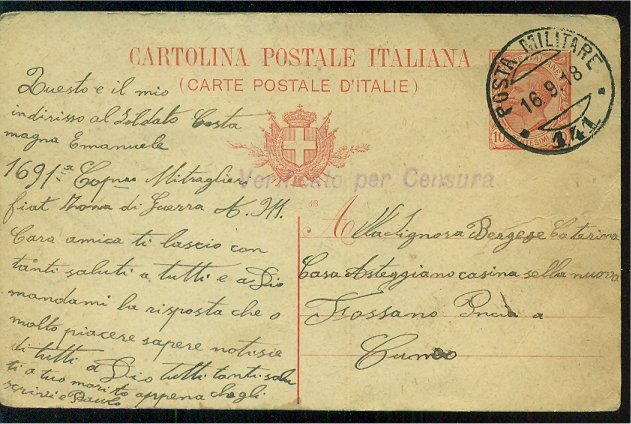 CARTOLINA POSTALE ITALIANA
(CARTE POSTALE D'ITALIE)
POSTA MILITARE
16.9.18
141
10
Verificato per Censura
18
Questo e il mio
indirisso al Soldato Costa
magna Emanuele
1691.a Copna Mitraglieri
fiat Zona di Guerra
Cara amica ti lascio con
tanti saluti a tutti e a Dio
mandami la risposta che o
molto piacere sapere notisie
di tutti a Dio tutti tanti salu
ti a tuo marito appena che gli
scrivi e
Alla Signora Bergese Caterina
Casa Asteggiano casina sella nuova
Fossano Pncia a
Cuneo